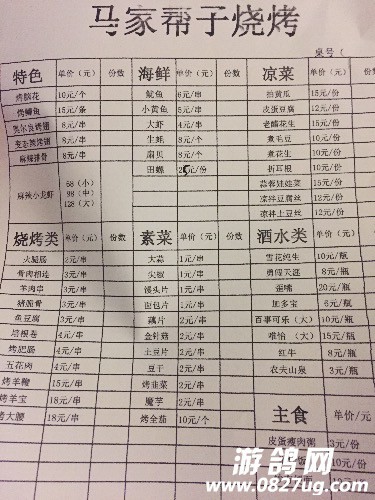 马家帮子烧烤
桌号（
特色 单价（元） 份数 海鲜 单价（元） 份数 凉菜 单价（元） 份数
烤脑花 10元/个 鱿鱼 6元/串 拍黄瓜 15元/份
烤鲫鱼 15元/条 小黄鱼 5元/串 皮蛋豆腐 12元/份
奥尔良烤翅 8元/串 大虾 4元/串 老醋花生 15元/份
变态辣烤翅 8元/串 生蚝 8元/个 煮毛豆 10元/份
麻辣排骨 8元/串 扇贝 8元/个 煮花生 10元/份
田螺 25元/份 折耳根 10元/份
麻辣小龙虾 68（小） 蒜蓉娃娃菜 15元/份
98（中） 凉拌豆腐丝 12元/份
128（大） 凉拌土豆丝 12元/份
烧烤类 单价（元） 份数 素菜 单价（元） 份数 酒水类 单价（元） 份数
火腿肠 2元/串 大蒜 1元/串 雪花纯生 10元/瓶
骨肉相连 3元/串 尖椒 1元/串 勇闯天涯 8元/瓶
羊肉串 3元/串 馒头片 1元/串 歪嘴 20元/瓶
猪脆骨 3元/串 面包片 1元/串 加多宝 6元/瓶
鱼豆腐 3元/串 藕片 2元/串 百事可乐（大） 10元/瓶
培根卷 4元/串 金针菇 2元/串 唯怡（大） 15元/瓶
烤肥肠 4元/串 土豆片 2元/串 红牛 8元/瓶
五花肉 4元/串 豆干 2元/串 农夫山泉 3元/瓶
烤羊鞭 15元/串 烤韭菜 2元/串
烤羊宝 18元/串 魔芋 2元/串 主食 单价/元
烤大腰 18元/串 烤全茄 10元/个 皮蛋瘦肉粥 3元/份
饭 10元/份
游鸽网
www.0827ug.com